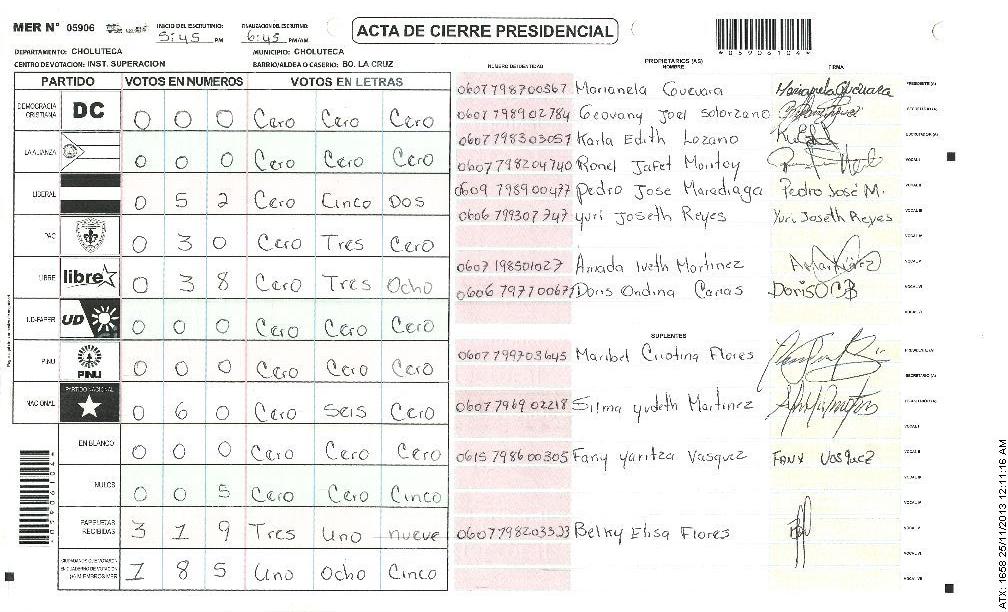 MER N° 05906
INICIO DEL ESCRUTINIO: 5:45 PM
FINALIZACION DEL ESCRUTINIO: 6:45 PM/AM
ACTA DE CIERRE PRESIDENCIAL
*05906104*
DEPARTAMENTO: CHOLUTECA
MUNICIPIO: CHOLUTECA
CENTRO DE VOTACION: INST. SUPERACION
BARRIO/ALDEA O CASERIO: BO. LA CRUZ
PARTIDO VOTOS EN NUMEROS VOTOS EN LETRAS
DEMOCRACIA CRISTIANA DC 0 0 0 Cero Cero Cero
LA ALIANZA 0 0 0 Cero Cero Cero
LIBERAL 0 5 2 Cero Cinco Dos
PAC 0 3 0 Cero Tres Cero
LIBRE libre 0 3 8 Cero Tres Ocho
UD-FAPER UD 0 0 0 Cero Cero Cero
PINU PINU 0 0 0 Cero Cero Cero
NACIONAL PARTIDO NACIONAL 0 6 0 Cero Seis Cero
EN BLANCO 0 0 0 Cero Cero Cero
NULOS 0 0 5 Cero Cero Cinco
PAPELETAS RECIBIDAS 3 1 9 Tres Uno nueve
CIUDADANOS QUE VOTARON EN CUADERNO DE VOTACION (+) MIEMBROS MER 1 8 5 Uno Ocho Cinco
PROPIETARIOS (AS)
NUMERO DE IDENTIDAD NOMBRE FIRMA
0607798700567 Marianela Guevara Marianela Guevara PRESIDENTE(A)
0607798902784 Geovany Joel Solorzano SECRETARIO(A)
0607798303057 Karla Edith Lozano ESCRUTADOR(A)
0607798204740 Ronel Jafet Montoy VOCAL I
0609798900477 Pedro Jose Maradiaga Pedro José M. VOCAL II
0606799307747 Yuri Joseth Reyes Yuri Joseth Reyes VOCAL III
VOCAL IV
0607198501027 Amada Iveth Martinez VOCAL V
0606797700671 Doris Ondina Canas Doris OCB VOCAL VI
VOCAL VII
SUPLENTES
0607799703645 Maribel Cristina Flores PRESIDENTE(A)
SECRETARIO(A)
0607796902218 Silma Yudeth Martinez ESCRUTADOR(A)
VOCAL I
0615798600305 Fany Yaritza Vasquez Fany Vasquez VOCAL II
VOCAL III
VOCAL IV
Belky Elisa Flores VOCAL V
VOCAL VI
VOCAL VII
*05906104*
ATX: 1658 25/11/2013 12:11:16 AM